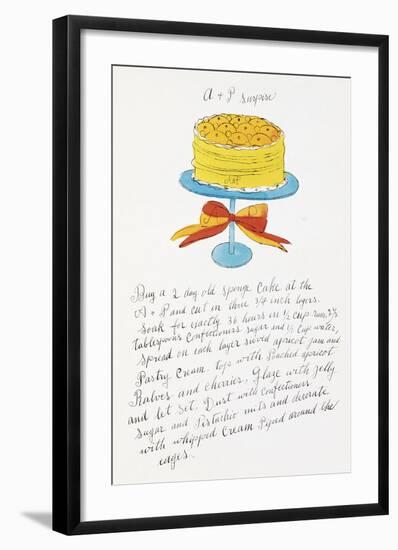 A & P Surpise
A & P
Buy a 2 day old sponge Cake at the
A & P and cut in three 3/4 inch layers.
Soak for exactly 36 hours in 1/2 cup rum,
tablespoons Confectioners sugar and 1/2 Cup water,
spread on each layer sieved apricot jam and
Pastry Cream. top with Poached apricot
Halves and cherries. Glaze with jelly
and let set. Dust with Confectioners
sugar and Pistachio nuts and decorate
with whipped Cream Piped around the
edges.